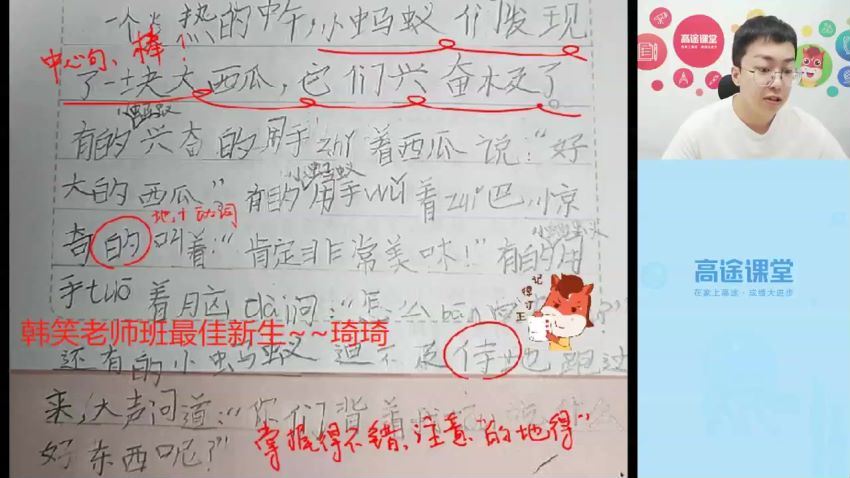 一个炎热的中午，小蚂蚁们发现
中心句，棒！
了一块大西瓜，它们兴奋极了。
小蚂蚁
有的兴奋的用手zhǐ着西瓜说：“好
小蚂蚁
大的西瓜”有的用手wǔ着zuǐ巴，惊
地+动词
小蚂蚁
奇的叫着：“肯定非常美味！”有的用
手tuō着脑dài问：“怎么bān
记得订正
韩笑老师班最佳新生~~琦琦
还有的小蚂蚁迫不及待地跑过
来，大声问道：“你们背着我
好东西呢？”
掌握得不错，注意“的地得”
高途课堂
在家上高途·成绩大进步
高途课堂
在家上高途·成绩大进步